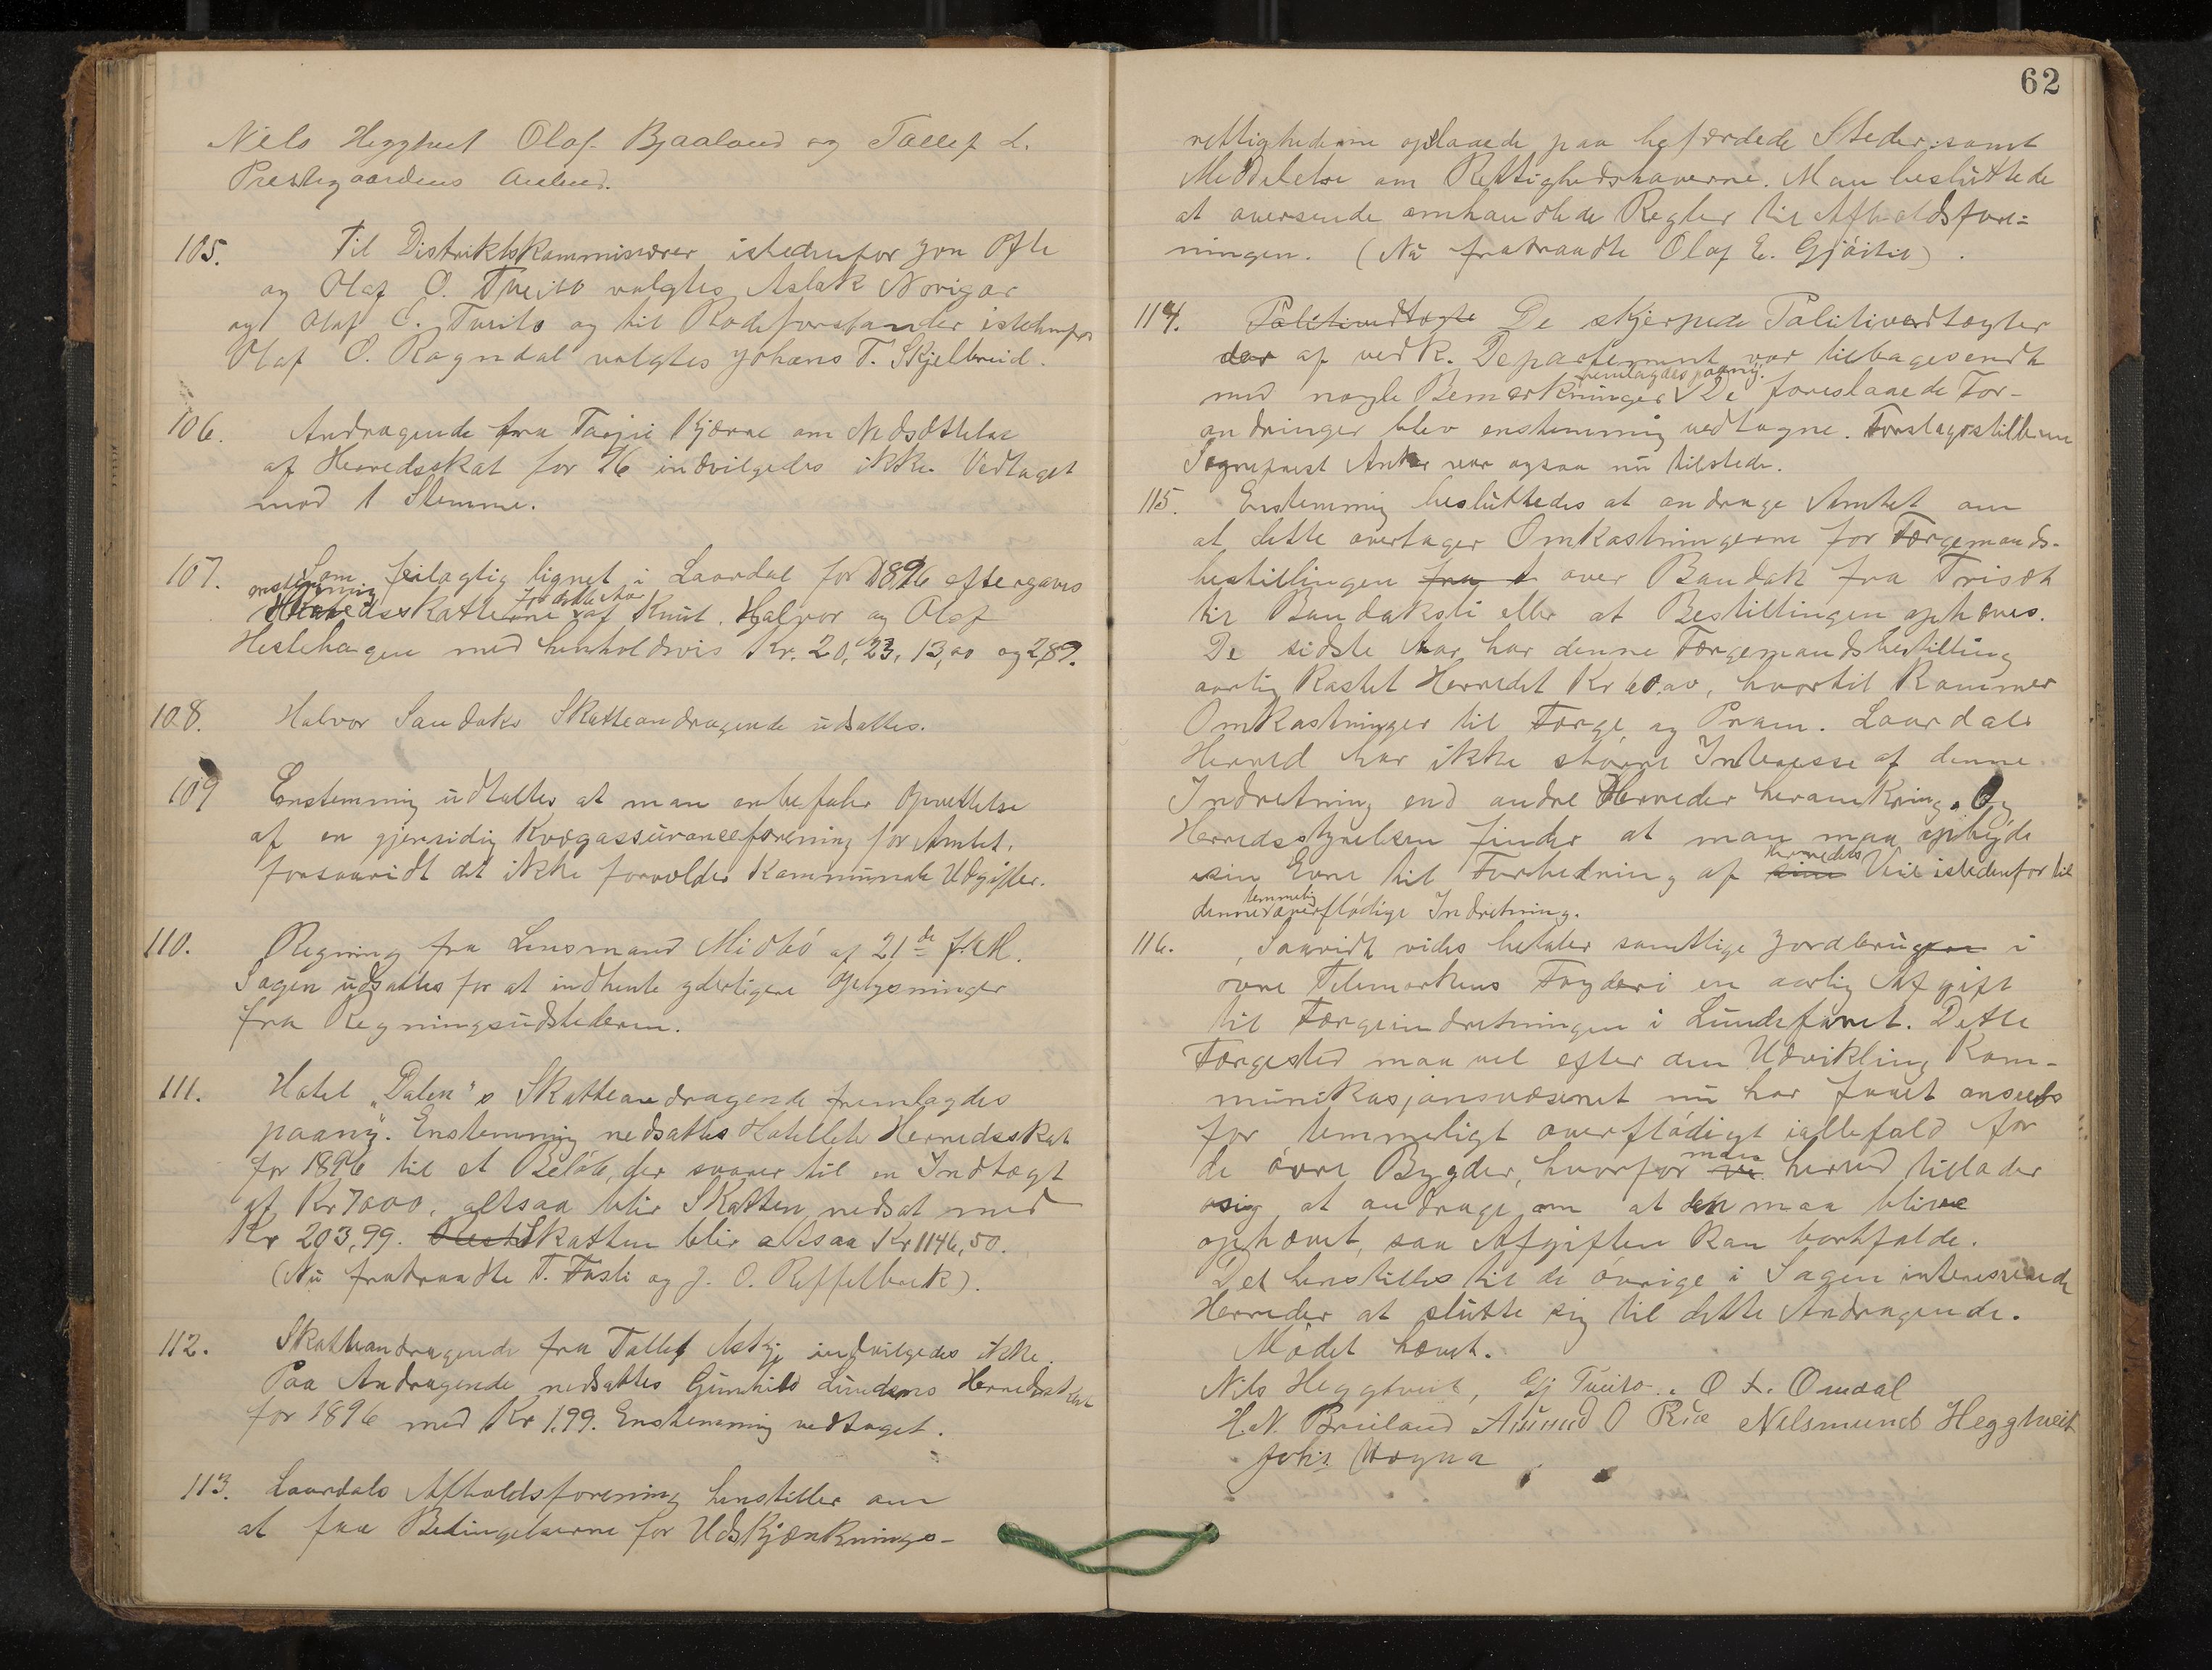 Nils Heggtveit Olaf Bjaaland og Tallef L.
Prestegaardens
105. Til Distriktskommisærer istedenfor Jon Ofte
og Olaf O. Tveito valgtes Aslak Norigar
og Olaf O. Tveito og til Rodeforstander istedenfor
Olaf O. Rogndal valgtes Johans T. Skjelbreid.
106. Andragende fra Tarjei Kjærne om Nedsættelse
af Herredsskat for 96 indvilgedes ikke. Vedtaget
mod 1 Stemme.
107. Som feilagtig lignet i Laardal for 1896 eftergaves
enstemmig
Herredsskatterne for dette Aar af Knut, Halvor og Olaf
Heslehagen med henholdsvis Kr. 20,23, 13,00 og 2,89.
108. Halvor Sandoks Skatteandragende udsattes.
109 Enstemmig udtaltes at man anbefaler Oprettelse
af en gjensidig Kvægassuranceforening for Amtet,
forsaavidt det ikke forvolder Kommunale Udgifter.
110. Regning fra Lensmand Midbö af 21de f.M.
Sagen udsattes for at indhente yderligere Oplysninger
fra Regningsudstederen.
111. Hotel "Dalen"s Skatteandragende fremlagdes
paany. Enstemmig nedsattes Hotellets Herredsskat
for 1896 til et Belöb, der svarer til en Indtægt
af Kr 7000, altsaa blir Skatten nedsat med
Kr 203,99. Skatten blir altsaa Kr 1146,50.
(Nu fratraadte T. Fosli og J. O. Reffelbæk).
112. Skatteandragende fra Tallef Askje indvilgedes ikke.
Paa Andragende nedsattes Gunhild Lundens Herredsskat
for 1896 med Kr 1.99. Enstemmig vedtaget.
113. Laardals Afholdsforening henstiller om
at faa Betingelserne for Udskjænknings-
62
rettighederne opslaaede paa befærdede Steder samt
Meddelelse om Rettighedshaverne. Man besluttede
at oversende omhandlede Regler til Afholdsfore=
ningen. (Nu fratraadte Olaf E. Gjöitil).
114. Politivedtægte De skjerpede Politivedtægter
der af vedk. Departement var tilbagesendt
med nogle Bemerkninger fremlagdes paany. De foreslaaede For-
andringer blev enstemmig vedtagne. Forslagsstilleren
Sogneprest Anker var ogsaa nu tilstede.
115. Enstemmig besluttedes at andrage Amtet om
at dette overtager Omkostningerne for Færgemands-
bestillingen over Bandak fra Trisæt
til Bandaksli eller at Bestillingen ophæves.
De sidste Aar har denne Færgemandsbestilling
aarlig kostet Herredet Kr 60.00, hvortil kommer
Omkostninger til Færge og Pram. Laardals
Herred har ikke större Interesse af denne
Indretning end andre Herreder heromkring. Og
Herredsstyrelsen finder at man maa opbyde
sin Evne til Forbedring af Herredets Veie istedenfor til
denne temmelig overflödige Indretning.
116. Saavidt vides betaler samtlige Jordbrug i
övre Telemarkens Fogderi en aarlig Afgift
til Færgeindretningen i Lundefaret. Dette
Færgested maa vel efter den Udvikling Kom-
munikasjonsvæsenet nu har faaet ansees
for temmeligt overflödigt iallefald for
de övre Bygder, hvorfor man herved tillader
sig at andrage om at den maa blive
ophævet, saa Afgiften kan bortfalde.
Det henstilles til de övrige i Sagen interesserede
Herreder at slutte sig til dette Andragende.
Mödet hævet.
Nils Heggtveit, Gj Tveito. O T. Omdal
H.N. Breiland Aamund O Rue Nilsmund Heggtveit
Johs. Wægna